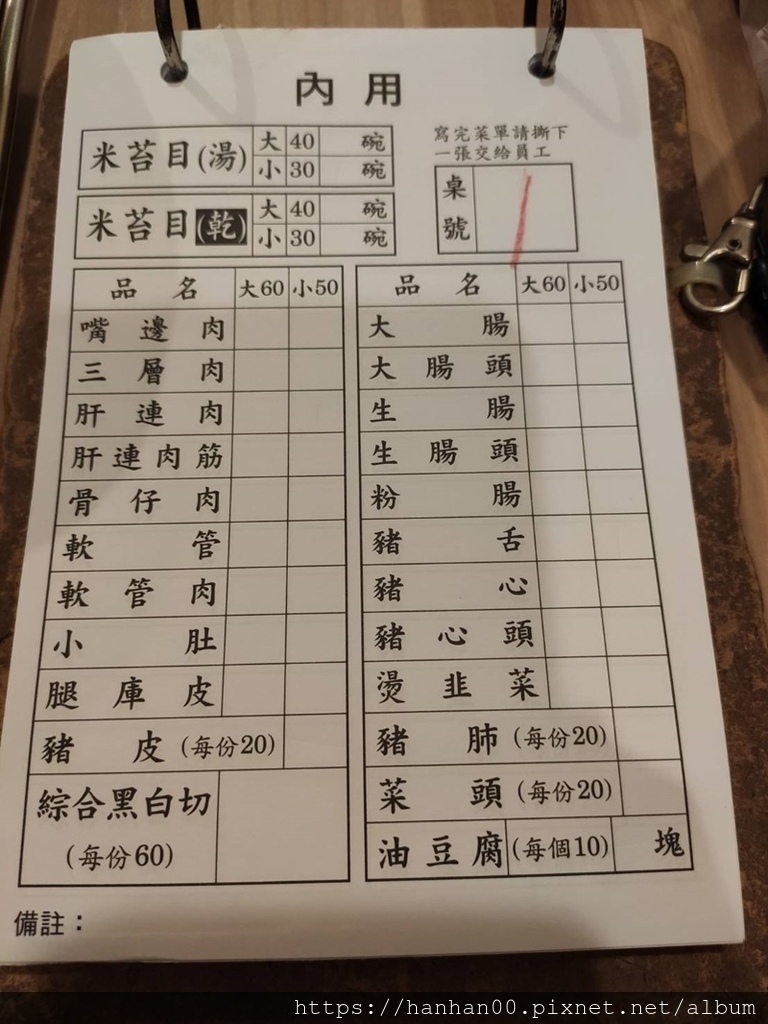 內用
米苔目(湯) 大 40 碗
小 30 碗
米苔目(乾) 大 40 碗
小 30 碗
寫完菜單請撕下
一張交給員工
桌號
品名 大60 小50
嘴邊肉
三層肉
肝連肉
肝連肉筋
骨仔肉
軟管
軟管肉
小肚
腿庫皮
豬皮(每份20)
綜合黑白切
(每份60)
品名 大60 小50
大腸
大腸頭
生腸
生腸頭
粉腸
豬舌
豬心
豬心頭
燙韭菜
豬肺(每份20)
菜頭(每份20)
油豆腐(每個10) 塊
備註：
https://hanhan00.pixnet.net/album